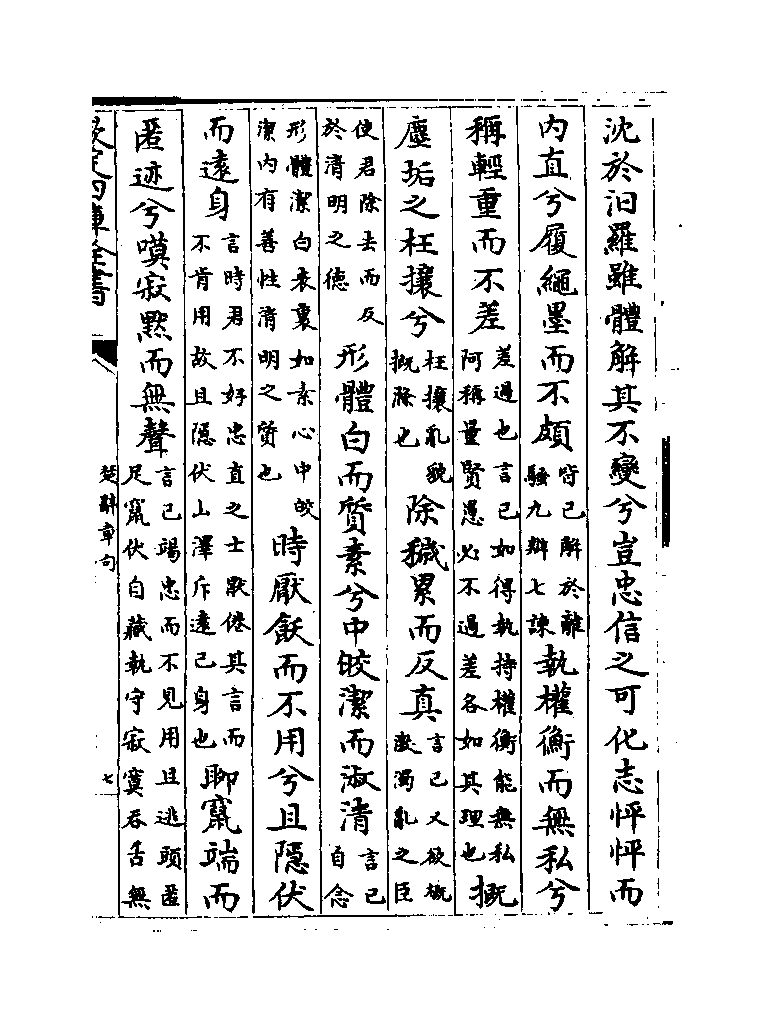 沈於汨羅雖體解其不變兮豈忠信之可化志怦怦而
内直兮履繩墨而不頗皆已解於離騷九辯七諫執權衡而無私兮
稱輕重而不差差過也言己如得執持權衡能無私阿稱量賢愚必不過差各如其理也摡
塵垢之枉攘兮枉攘亂貌摡滌也除穢累而反真言己又欲摡激濁亂之臣
使君除去而反於清明之德形體白而質素兮中皎潔而淑清言己自念
形體潔白表裏如素心中皎潔内有善性清明之質也時厭飫而不用兮且隱伏
而遠身言時君不好忠直之士厭倦其言而不肯用故且隱伏山澤斥遠己身也聊竄端而
匿迹兮嘆寂默而無聲言己竭忠而不見用且逃頭匿足竄伏自藏執守寂寞吞舌無
欽定四庫全書
楚辭章句
七